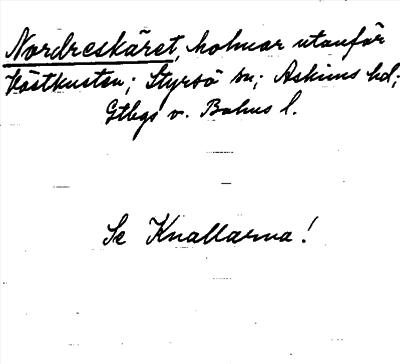 Nordreskäret, holmar utanför
Västkusten; Styrsö sn; Askims hd;
Gtbgs o. Bohus l.
Se Knallarna!